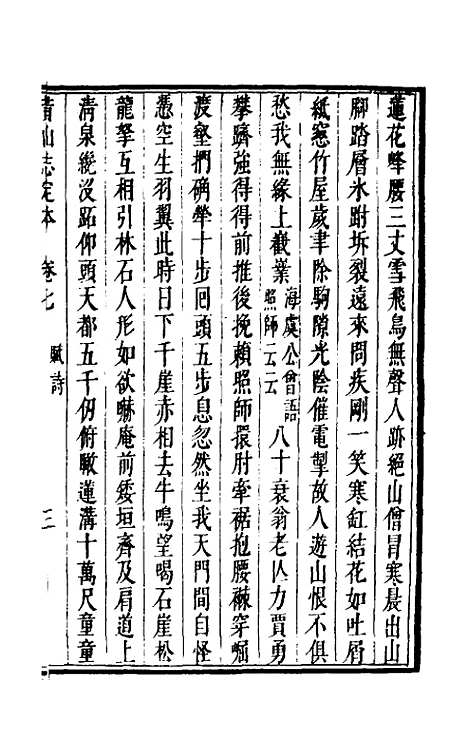 蓮花峰腰三丈雪飛鳥無聲人跡絕山僧冒寒晨出山
腳踏層氷跗坼裂遠來問疾剛一笑寒缸結花如吐屑
紙窓竹屋歲聿除駒隙光陰催電掣故人遊山恨不俱
愁我無緣上截業海虞公曾語照師云云八十衰翁老仄力賈勇
攀躋強得得前推後挽賴照師擐肘牽裾抱腰襪穿崛
渡壑捫确犖十步回頭五步息忽然坐我天門間自怪
憑空生羽翼此時日下千崖赤相去牛鳴望喝石崖松
龍拏互相引林石人形如欲嚇庵前矮垣齊及肩道上
淸泉纔沒跖仰頭天都五千仞俯瞰蓮溝十萬尺童童
山志定本 卷七 賦詩 三